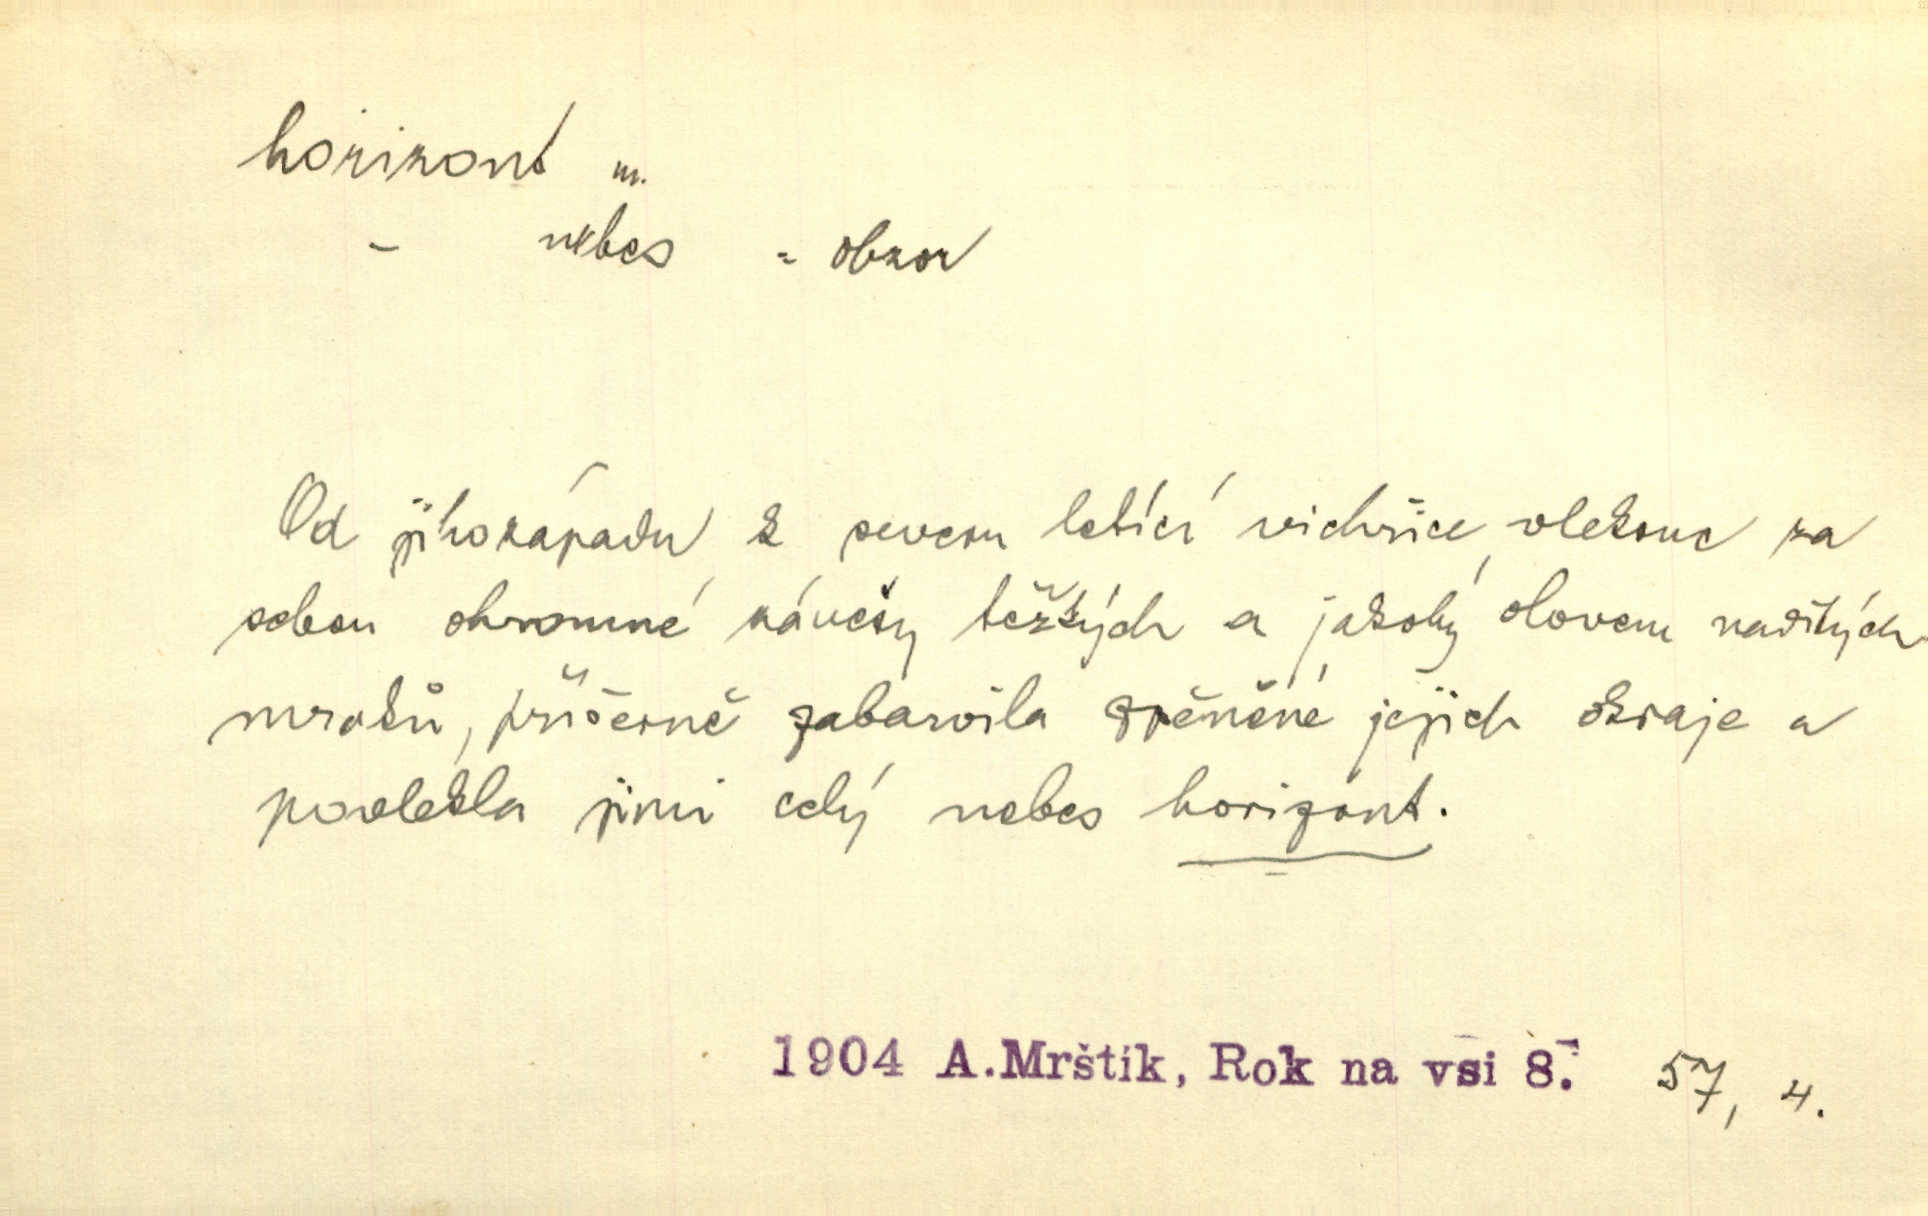 horizont m.
- nebes = obzor
Od jihozápadu k severu letící vichřice, vlekouc za
sebou ohromné závěsy těžkých a jakoby olovem naditých
mraků, příčerně zabarvila zpěněné jejich okraje a
povlekla jimi celý nebes horizont.
1904 A.Mrštík, Rok na vsi 8. 57, 4.